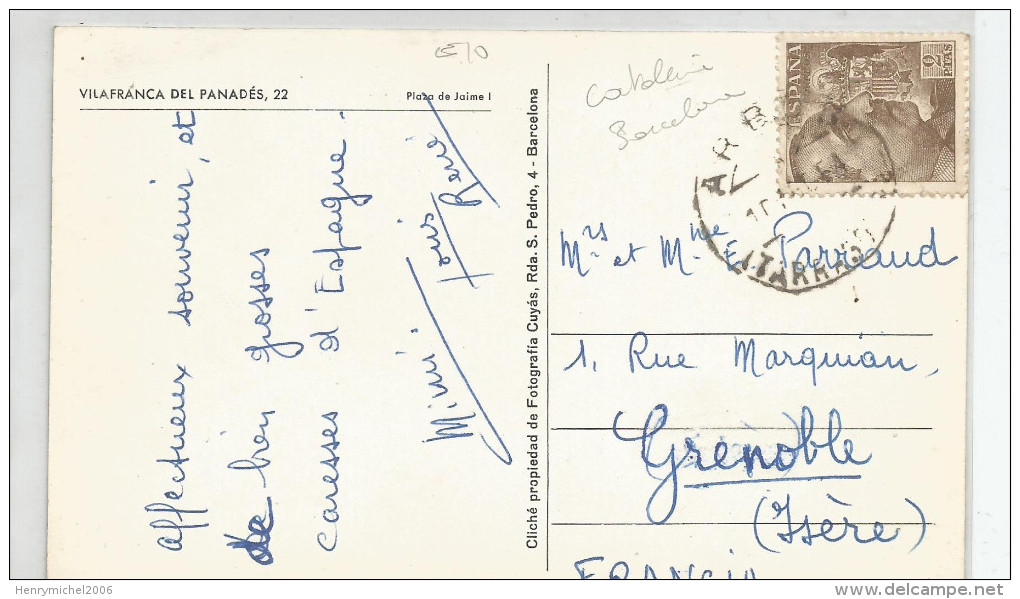 VILAFRANCA DEL PANADÉS, 22
Plaza de Jaime I
affectueux souvenir, et
de bien grosses
caresses d'Espagne.
Mimi.
Louis
René
Cliché propiedad de Fotografía Cuyás, Rda. S. Pedro, 4 - Barcelona
Barcelona
ESPAÑA
2
PTAS
ARB
(TARRAGO
Mrs et Mme E. Parraud
1, Rue Marquian,
Grenoble
(Isère)
FRANCIA
Henrymichel2006
delcampe.net